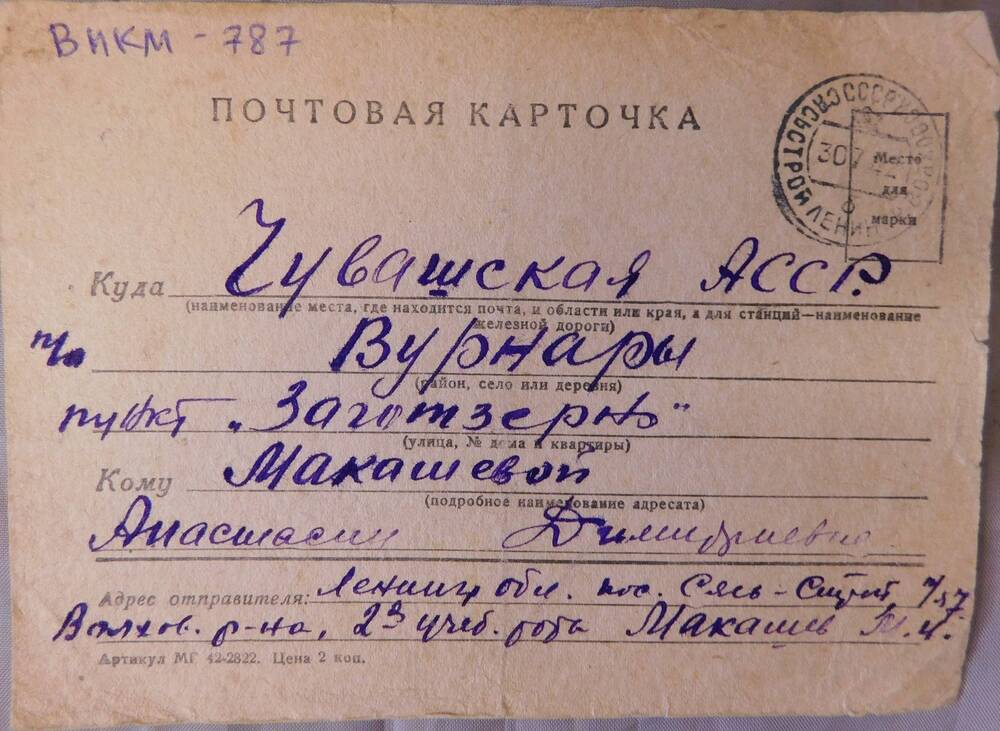 ВИКМ - 787
ПОЧТОВАЯ КАРТОЧКА
СЯСЬСТРОЙ ЛЕНИН
307
Место
для
марки
Куда Чувашская АССР.
(наименование места, где находится почта, и области или края, а для станций—наименование
железной дороги)
п/о Вурнары
(район, село или деревня)
пункт „Заготзерно"
(улица, № дома и квартиры)
Кому Макашевой
(подробное наименование адресата)
Анастасии Димитриевне
Адрес отправителя: Ленингр обл. пос. Сясь-Строй,
Волхов. р-на, 2я учеб. рота Макашев М.И.
Артикул МГ 42-2822. Цена 2 коп.